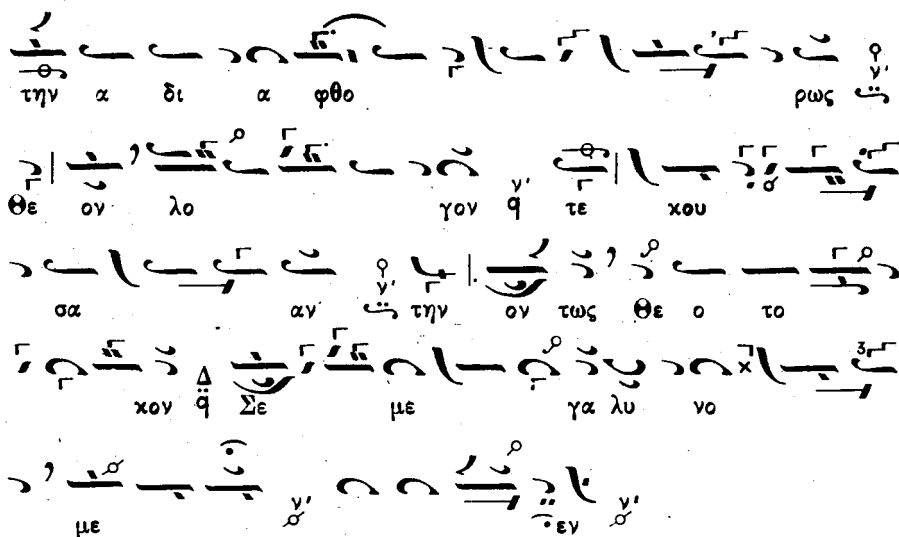 την α δι α φθο ρως ν'
Θε ον λο γον ν' q τε κου
σα αν ν' την ον τως Θε ο το
κον Δ q Σε με γα λυ νο
με ν' εν ν'